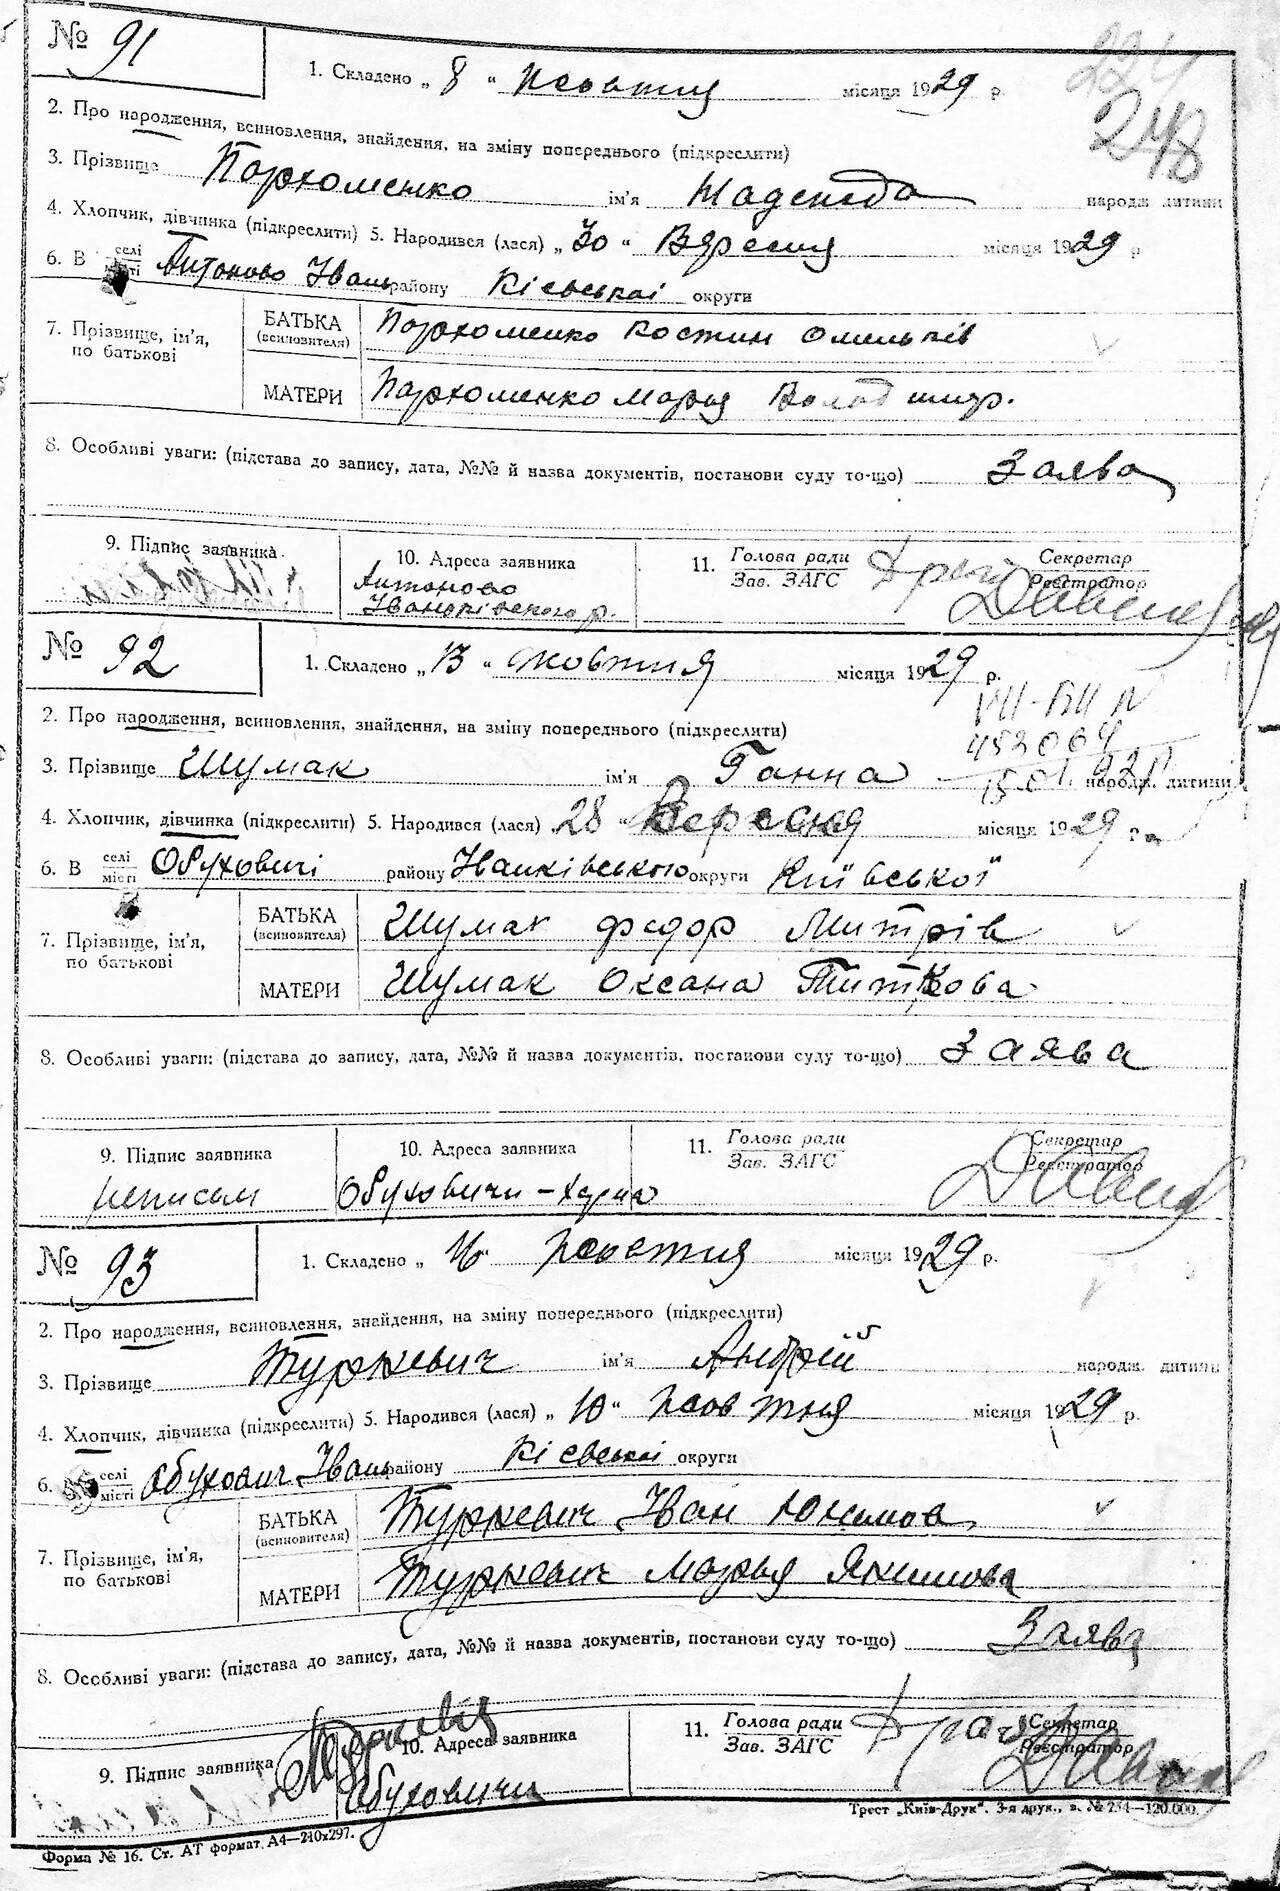 № 91
1. Складено „ 8 “ жовтня місяця 1929 р.
224
248
2. Про народження, всиновлення, знайдення, на зміну попереднього (підкреслити)
3. Прізвище Пархоменко ім'я Надежда народж. дитини
4. Хлопчик, дівчинка (підкреслити) 5. Народився (лася) „ 30 “ Вересня місяця 1929 р
6. В селі місті Антоново Івань району Кієвськаі округи
7. Прізвище, ім'я, по батькові
БАТЬКА (всиновителя) Пархоменко Костин Омельків
МАТЕРИ Пархоменко Мария Володимир.
8. Особливі уваги: (підстава до запису, дата, №№ й назва документів, постанови суду то-що) Заява
9. Підпис заявника
10. Адреса заявника
Антоново
Іванківського р.
11. Голова ради Зав. ЗАГС
Секретар Реєстратор
№ 92
1. Складено „ 13 “ жовтня місяця 1929 р.
2. Про народження, всиновлення, знайдення, на зміну попереднього (підкреслити)
452064
3. Прізвище Шумак ім'я Ганна народж. дитини
4. Хлопчик, дівчинка (підкреслити) 5. Народився (лася) 28 “ Вересня місяця 1929 р
6. В селі місті Обуховичі району Іванківського округи Київської
7. Прізвище, ім'я, по батькові
БАТЬКА (всиновителя) Шумак Федор Митрів
МАТЕРИ Шумак Оксана Титкова
8. Особливі уваги: (підстава до запису, дата, №№ й назва документів, постанови суду то-що) Заява
9. Підпис заявника
неписом
10. Адреса заявника
Обуховичи –
11. Голова ради Зав. ЗАГС
Секретар Реєстратор
№ 93
1. Складено „ 16 “ жовтня місяця 1929 р.
2. Про народження, всиновлення, знайдення, на зміну попереднього (підкреслити)
3. Прізвище Туркевич ім'я Андрій народж. дитини
4. Хлопчик, дівчинка (підкреслити) 5. Народився (лася) „ 10 “ жовтня місяця 1929 р.
6. селі місті Обухович Івань району Кієвськаі округи
7. Прізвище, ім'я, по батькові
БАТЬКА (всиновителя) Туркевич Іван
МАТЕРИ Туркевич Марья Якимова
8. Особливі уваги: (підстава до запису, дата, №№ й назва документів, постанови суду то-що) Заява
9. Підпис заявника
10. Адреса заявника
Обуховичи
11. Голова ради Зав. ЗАГС
Секретар Реєстратор
Форма № 16. Ст. АТ формат А4—210х297.
Трест „Київ-Друк“. 3-я друк., з. № 254—120.000.